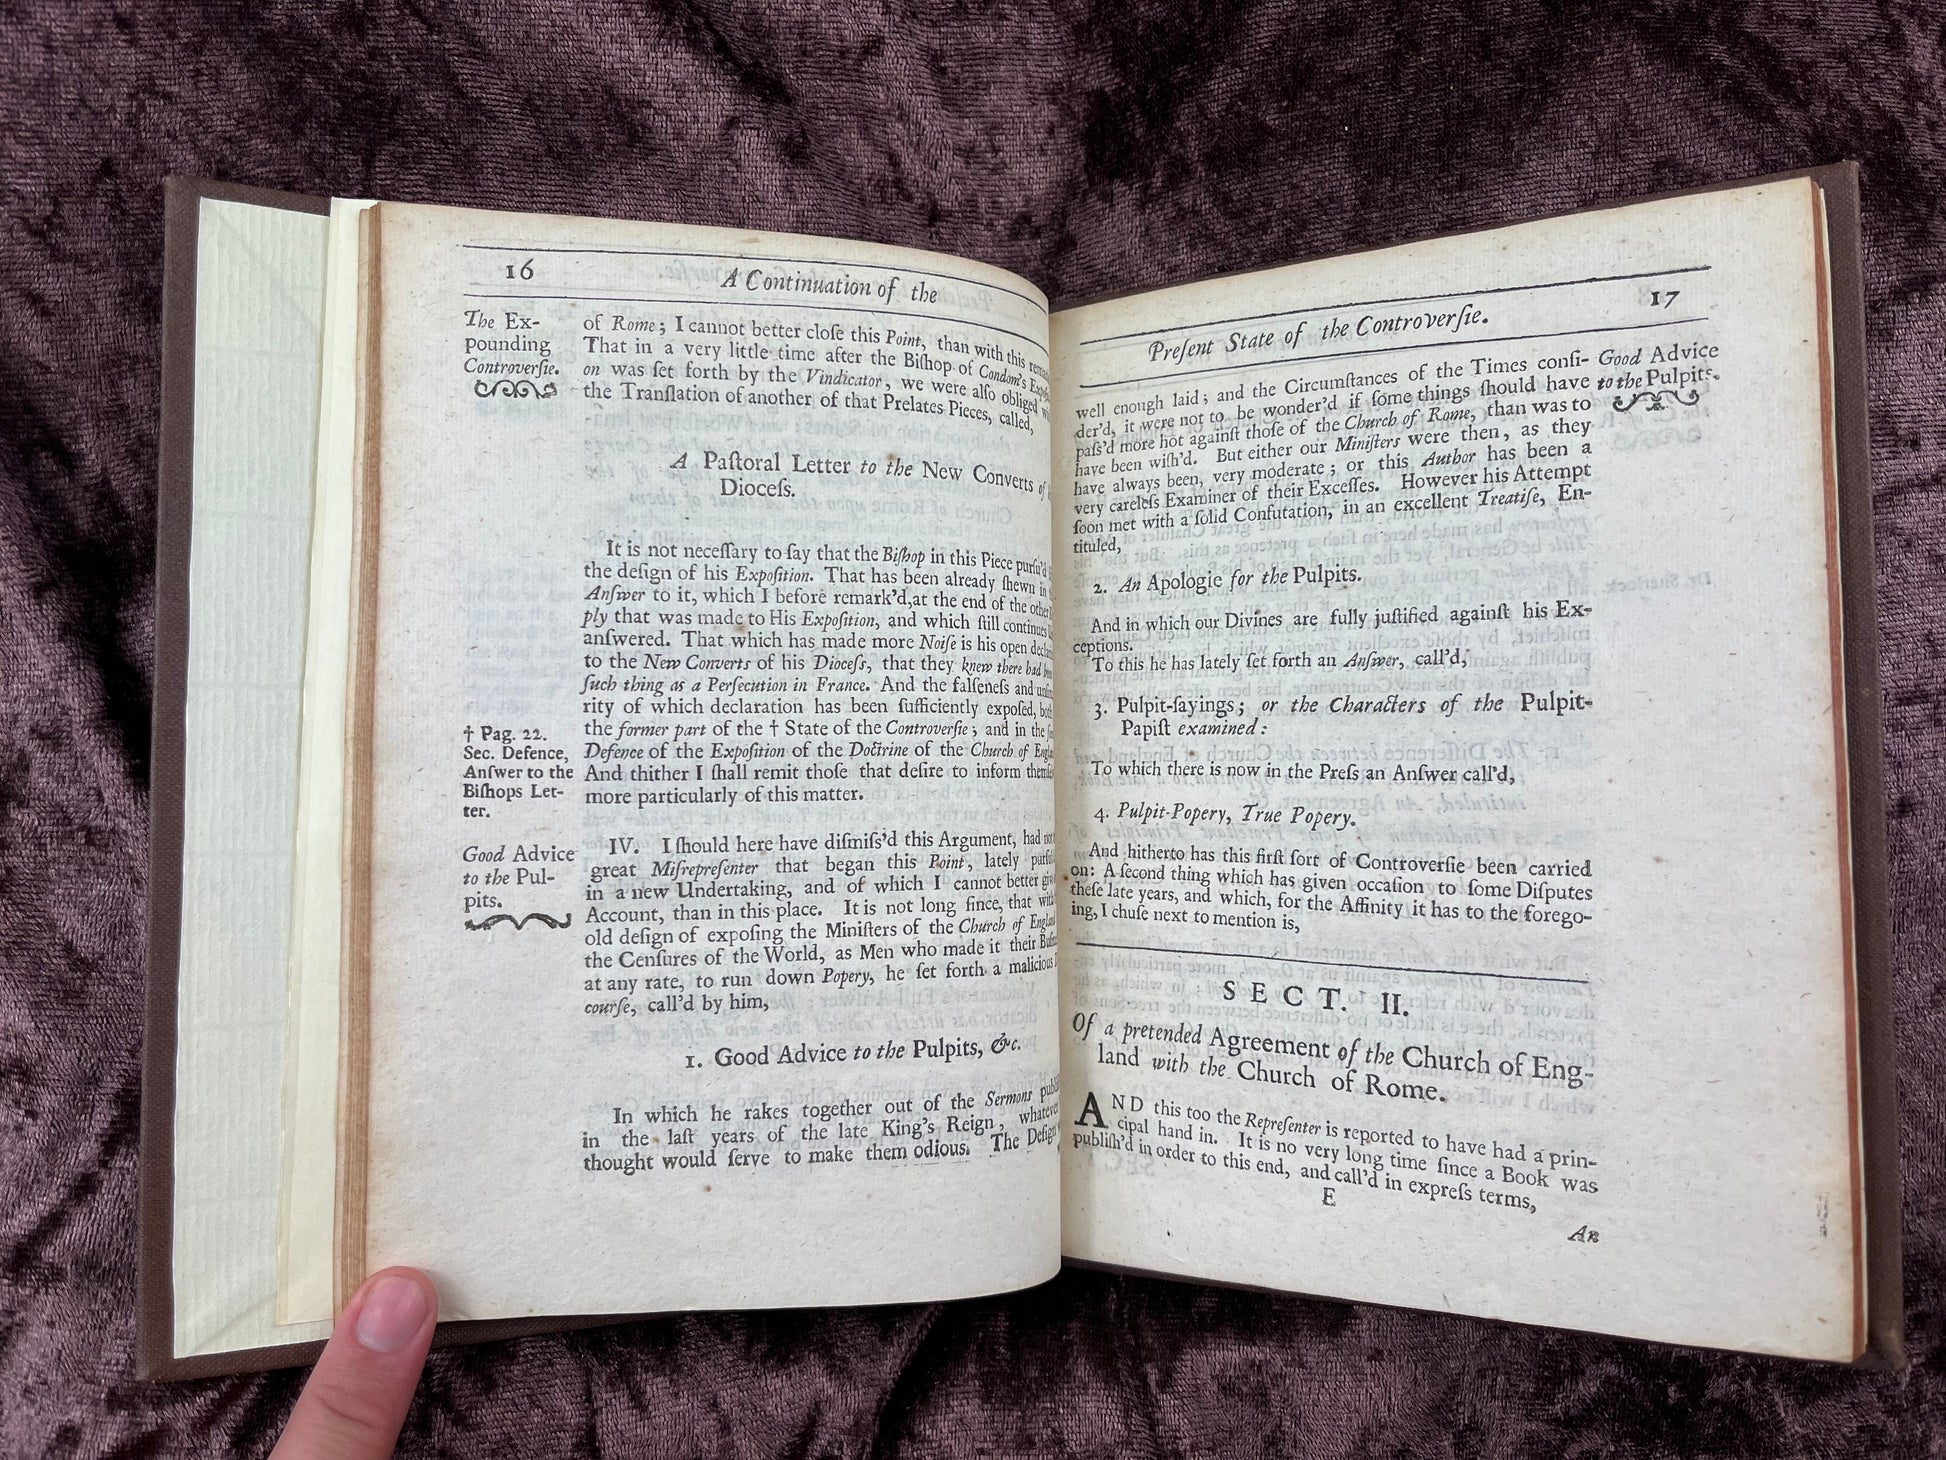 16
A Continuation of the
The Ex-
pounding
Controverſie.
of Rome; I cannot better cloſe this Point, than with this
That in a very little time after the Biſhop of Condom's
on was ſet forth by the Vindicator, we were alſo obliged
the Tranſlation of another of that Prelates Pieces, called,
A Paſtoral Letter to the New Converts of
Dioceſs.
It is not neceſſary to ſay that the Biſhop in this Piece purſu'd
the deſign of his Expoſition. That has been already ſhewn in
Anſwer to it, which I before remark'd, at the end of the other
ply that was made to His Expoſition, and which ſtill continues
anſwered. That which has made more Noiſe is his open
to the New Converts of his Dioceſs, that they knew there had
ſuch thing as a Perſecution in France. And the falſeneſs and
rity of which declaration has been ſufficiently expoſed,
the former part of the † State of the Controverſie; and in the
Defence of the Expoſition of the Doctrine of the Church of
And thither I ſhall remit thoſe that deſire to inform
more particularly of this matter.
† Pag. 22.
Sec. Defence,
Anſwer to the
Biſhops Let-
ter.
Good Advice
to the Pul-
pits.
IV. I ſhould here have diſmiſs'd this Argument, had
great Miſrepreſenter that began this Point, lately
in a new Undertaking, and of which I cannot better
Account, than in this place. It is not long ſince, that
old deſign of expoſing the Miniſters of the Church of
the Cenſures of the World, as Men who made it their
at any rate, to run down Popery, he ſet forth a malicious
courſe, call'd by him,
1. Good Advice to the Pulpits, &c.
In which he rakes together out of the Sermons
in the laſt years of the late King's Reign, whatever
thought would ſerve to make them odious. The Deſign
Preſent State of the Controverſie.
17
Good Advice
to the Pulpits.
well enough laid; and the Circumſtances of the Times conſi-
der'd, it were not to be wonder'd if ſome things ſhould have
paſs'd more hot againſt thoſe of the Church of Rome, than was to
have been wiſh'd. But either our Miniſters were then, as they
have always been, very moderate; or this Author has been a
very careleſs Examiner of their Exceſſes. However his Attempt
ſoon met with a ſolid Confutation, in an excellent Treatiſe, En-
tituled,
2. An Apologie for the Pulpits.
And in which our Divines are fully juſtified againſt his Ex-
ceptions.
To this he has lately ſet forth an Anſwer, call'd,
3. Pulpit-ſayings; or the Characters of the Pulpit-
Papiſt examined:
To which there is now in the Preſs an Anſwer call'd,
4. Pulpit-Popery, True Popery.
And hitherto has this firſt ſort of Controverſie been carried
on: A ſecond thing which has given occaſion to ſome Diſputes
theſe late years, and which, for the Affinity it has to the forego-
ing, I chuſe next to mention is,
SECT. II.
Of a pretended Agreement of the Church of Eng-
land with the Church of Rome.
AND this too the Repreſenter is reported to have had a prin-
cipal hand in. It is no very long time ſince a Book was
publiſh'd in order to this end, and call'd in expreſs terms,
E
An